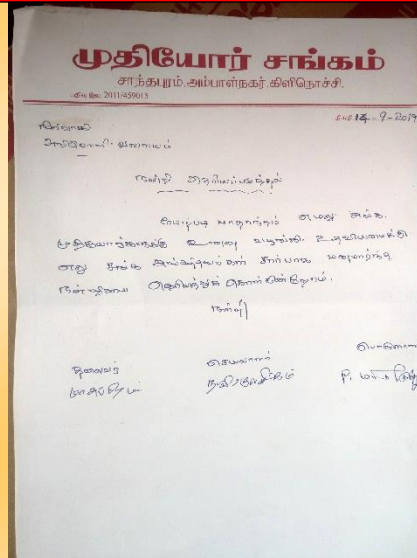 முதியோர் சங்கம்
சாந்தபுரம்.அம்பாள்நகர்.கிளிநொச்சி.
பதிவு இல: 2011/459015
14-9-2019
நிர்வாகி
நன்றி தெரியப்படுத்தல்
மேற்படி எமது சங்க
முதியவர்களுக்கு உணவு வழங்கி உதவியமைக்கு
எமது சங்க அங்கத்தவர்கள் சார்பாக மனமார்ந்த
நன்றியை தெரிவித்துக் கொள்கின்றோம்.
நன்றி
தலைவர் செயலாளர் பொருளாளர்